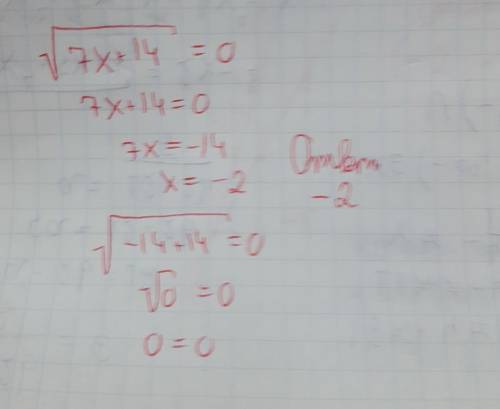 √(7x+14) = 0
7x+14=0
7x=-14
x = -2
Ответ
-2
√(-14+14) = 0
√0 = 0
0 = 0